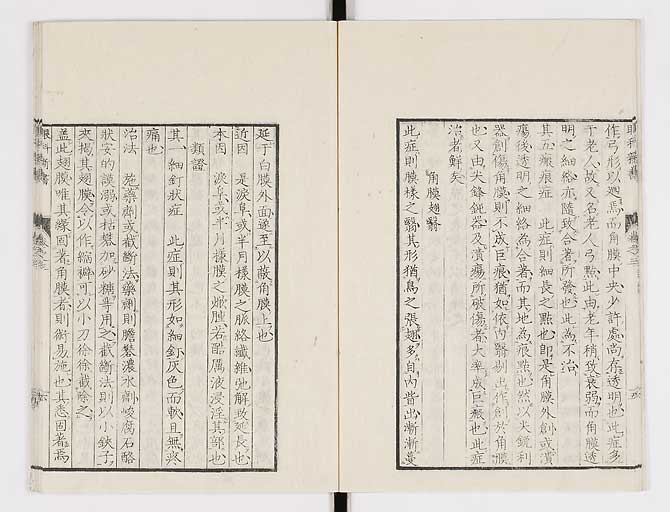 作弓形以廻焉而角膜中央少許處尚存透明也此症多
于老人故又名老人弓㸃此由老年稍致衰弱而角膜透
明之細絡亦隨致合著所發也此為不治
其五瘢痕症　此症則細長之㸃也卽是角膜外創或潰
瘍後透明之細絡為合著而其地為痕㸃也然以尖銳利
器創傷角膜則不成巨痕猶如依内翳剔出作創於角膜
也又由尖鋒鈍器及潰瘍所破傷者大率成巨瘢也此症
治者鮮矣
角膜翅翳
此症則膜樣之翳其形猶鳥之張翅多自内眥出漸漸蔓
延于白膜外面遂至以蔽角膜上也
近因　是淚阜或半月樣膜之脈絡纖維弛解致延長也
本因　淚阜或半月樣膜之焮腫若酷厲液浸淫其部也
類證
其一細釘狀症　此症則其形如細釘灰色而軟且無疼
痛也
治法　施藥劑或截斷法藥劑則膽礬濃水劑峻腐石酪
狀安的謨溺或枯礬加砂糖等用之截斷法則以小鋏子
夾揚其翅膜令以作縮襞可以小刀徐徐截除之
蓋此翅膜唯其緣固著角膜者則術易施也其悉固著焉